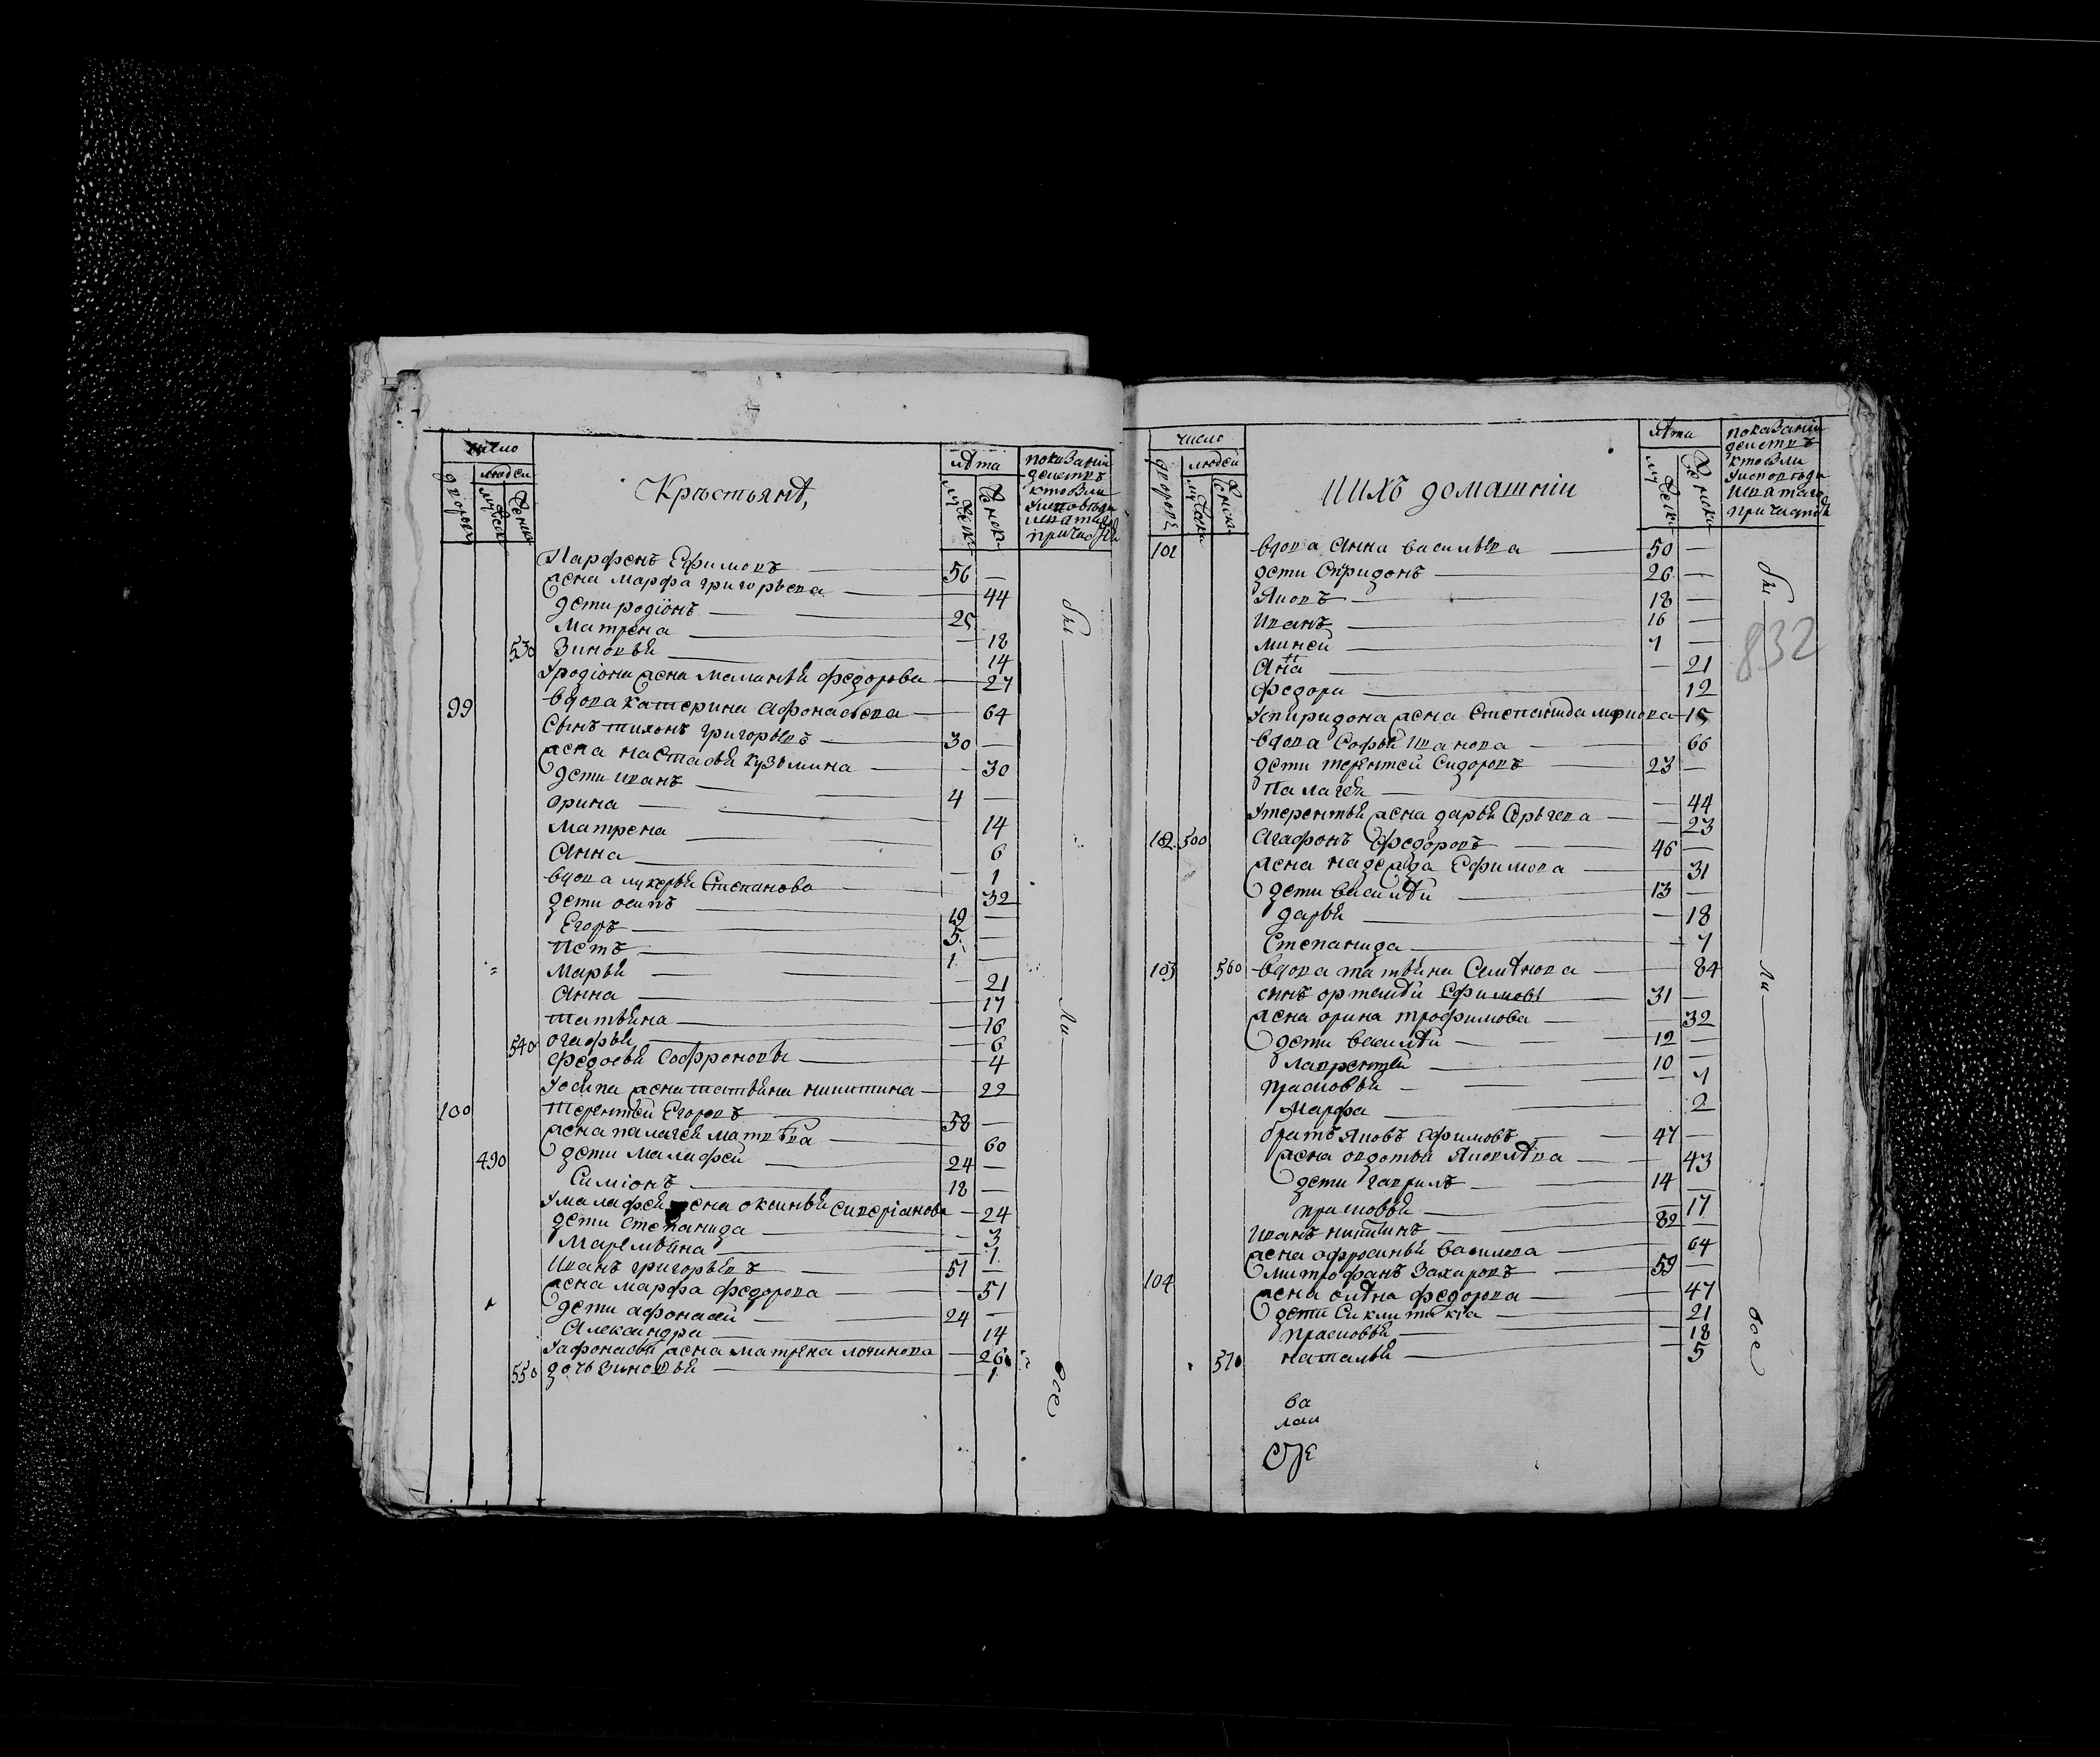 число
людей
дворовъ
мужеска
женска
Крестьянѣ,
лѣта
мужеска
женска
показаніи
Парфенъ Ефимовъ — 56 —
жена марфа григорьева — 44
дети родіонъ — 25
Матрена — 18
530 Зиновьй — 14
Уродіона жена маланьй федорова — 27
99 вдова катерина афонасьева — 64
Сынъ тихонъ григорьевъ — 30 —
жена настасьй кузьмина — 30
дети иванъ — 4 —
орина —
Матрена — 14
Анна — 6
1
вдова лукерьй Степанова — 32
дети осипъ — 19 —
Егоръ — 5 —
1 —
Марьй — 21
Анна — 17
татьяна — 16
540 огафьй — 6
федосьй Софронова — 4
Уосипа жена татьяна никитина — 22
100 терентей Егоровъ — 58 —
жена палагей матвѣва — 60
490 дети Малафей — 24 —
Симіонъ — 18 —
Умалафей жена оксиньй — 24
дети Степанида — 3
Маремьяна — 1
Иванъ григорьевъ — 51 —
жена марфа федорова — 51
дети афонасей — 24 —
Александра — 14
Уафонасьй жена матрена логинова — 26
550 дочь зиновьй — 1
были
все
число
людей
дворовъ
мужеска
женска
ИИХЪ домашніи
лѣта
мужеска
женска
показаніи
101 вдова Анна васильева — 50 —
дети Спиридонъ — 26 —
Яковъ — 18 —
Иванъ — 16 —
миней — 7 —
Анна — 21
федора — 12
Успиридона жена Степанида маркова — 15
вдова Софьй иванова — 66
дети терентей Сидоровъ — 23 —
Палагей — 44
Утерентьй жена дарьй Сергева — 23
102 500 Агафонъ федоровъ — 46 —
жена надежда Ефимова — 31
дети василѣй — 13 —
дарьй — 18
Степанида — 7
103 560 вдова татьяна Семѣнова — 84
сынъ ортемѣй Ефимовъ — 31 —
жена орина трофимова — 32
дети василѣй — 12 —
лаврентей — 10 —
прасковьй — 7
Марфа — 2
братъ Яковъ Ефимовъ — 47 —
жена овдотьй Яковлѣва — 43
дети гаврилъ — 14 —
прасковьй — 17
Иванъ никитинъ — 82 —
жена офросиньй василева — 64
104 митрофанъ Захаровъ — 59 —
жена олѣна федорова — 47
дети Сиклитикіа — 21
прасковьй — 18
570 наталья — 5
832
были
все
ва